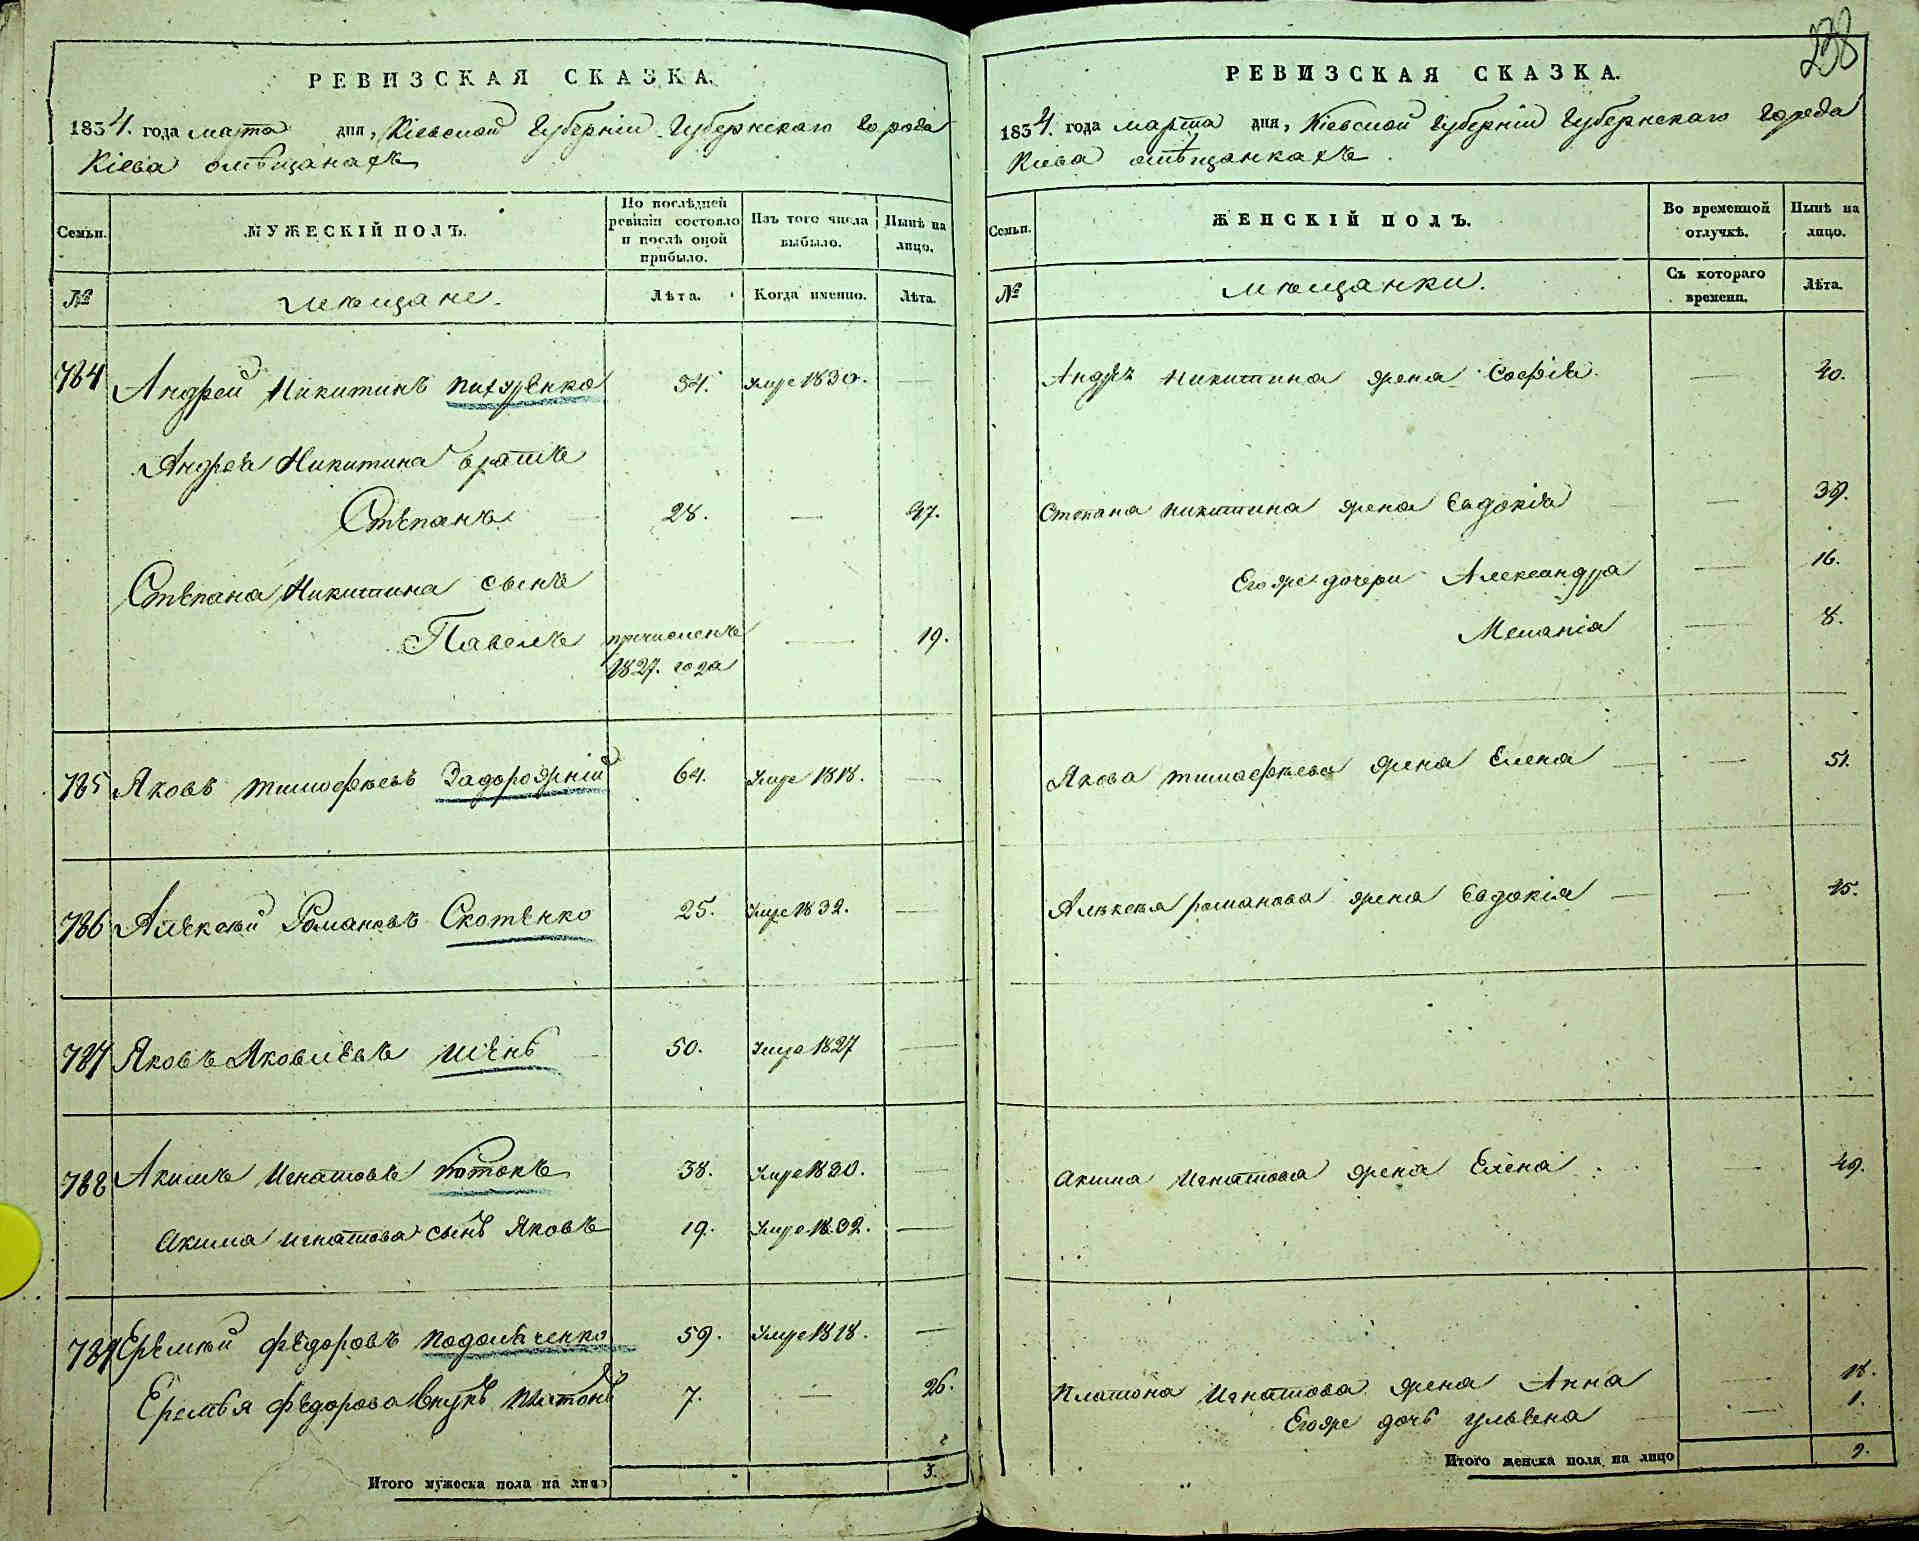 РЕВИЗСКАЯ СКАЗКА.
1834. года марта дня, Кіевской Губерніи Губернскаго города
Кіева омѣщанахъ
Семьи.
МУЖЕСКІЙ ПОЛЪ.
По послѣдней ревизіи состояло и послѣ оной прибыло.
Изъ того числа выбыло.
Нынѣ на лицо.
№
мѣщане.
Лѣта.
Когда именно.
Лѣта.
784 Андрей Никитинъ 34. Умре 1830.
Андрея Никитина братъ
Степанъ 28. — 47.
Степана Никитина сынъ
Павелъ причисленъ — 19.
1827. года
785 Яковъ Тимофѣевъ Задорожній 64. Умре 1818. —
786 Алексѣй Романовъ Скотенко 25. Умре 1832. —
787 Яковъ Яковлевъ 50. Умре 1827 —
788 Акимъ Игнатовъ Котокъ 38. Умре 1820. —
Акима Игнатова сынъ Яковъ 19. Умре 1832. —
789 Еремѣй Федоровъ Подольченко 59. Умре 1818. —
Еремѣя Федорова внукъ Платонъ 7. — 26.
Итого мужеска пола на лицо 3.
238
РЕВИЗСКАЯ СКАЗКА.
1834. года марта дня, Кіевской Губерніи Губернскаго города
Кіева омѣщанкахъ.
Семьи.
ЖЕНСКІЙ ПОЛЪ.
Во временной отлучкѣ.
Нынѣ на лицо.
№
мѣщанки.
Съ котораго времени.
Лѣта.
Никитина жена Софія — 40.
Степана Никитина жена Евдокія — 39.
Егоже дочери Александра — 16.
Меланія — 8.
Якова Тимофѣева жена Елена — 51.
Алексѣя Романова жена Евдокія — 45.
Акима Игнатова жена Елена — 49.
Платона Игнатова жена Анна — 18.
Егоже дочь Ульяна — 1.
Итого женска пола на лицо 9.